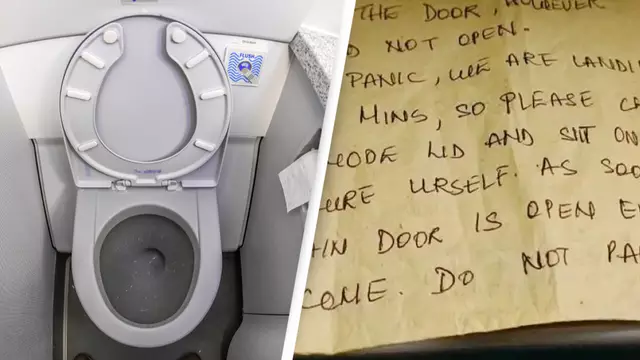 FLUSH
THE DOOR, HOWEVER
D NOT OPEN.
PANIC, WE ARE LANDI
MINS, SO PLEASE C
MODE LID AND SIT ON
URE URSELF. AS SOO
IN DOOR IS OPEN E
COME. DO NOT PA